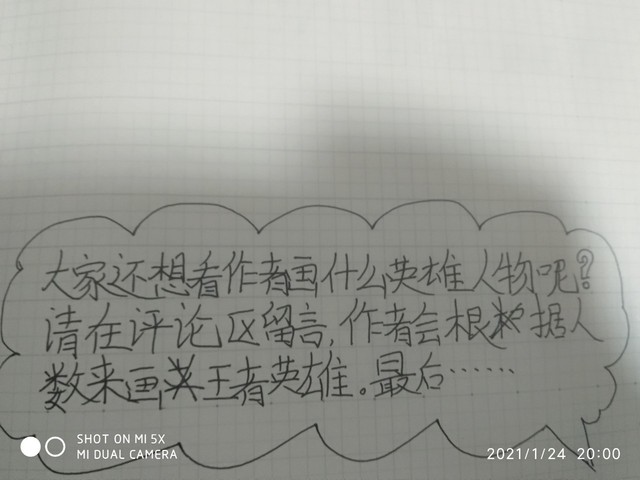 大家还想看作者画什么英雄人物呢？
请在评论区留言，作者会根据人
数来画王者英雄。最后……
SHOT ON MI 5X
MI DUAL CAMERA
2021/1/24 20:00